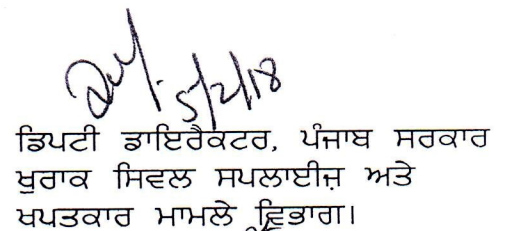 5/2/18
ਡਿਪਟੀ ਡਾਇਰੈਕਟਰ, ਪੰਜਾਬ ਸਰਕਾਰ
ਖੁਰਾਕ ਸਿਵਲ ਸਪਲਾਈਜ਼ ਅਤੇ
ਖਪਤਕਾਰ ਮਾਮਲੇ ਵਿਭਾਗ।